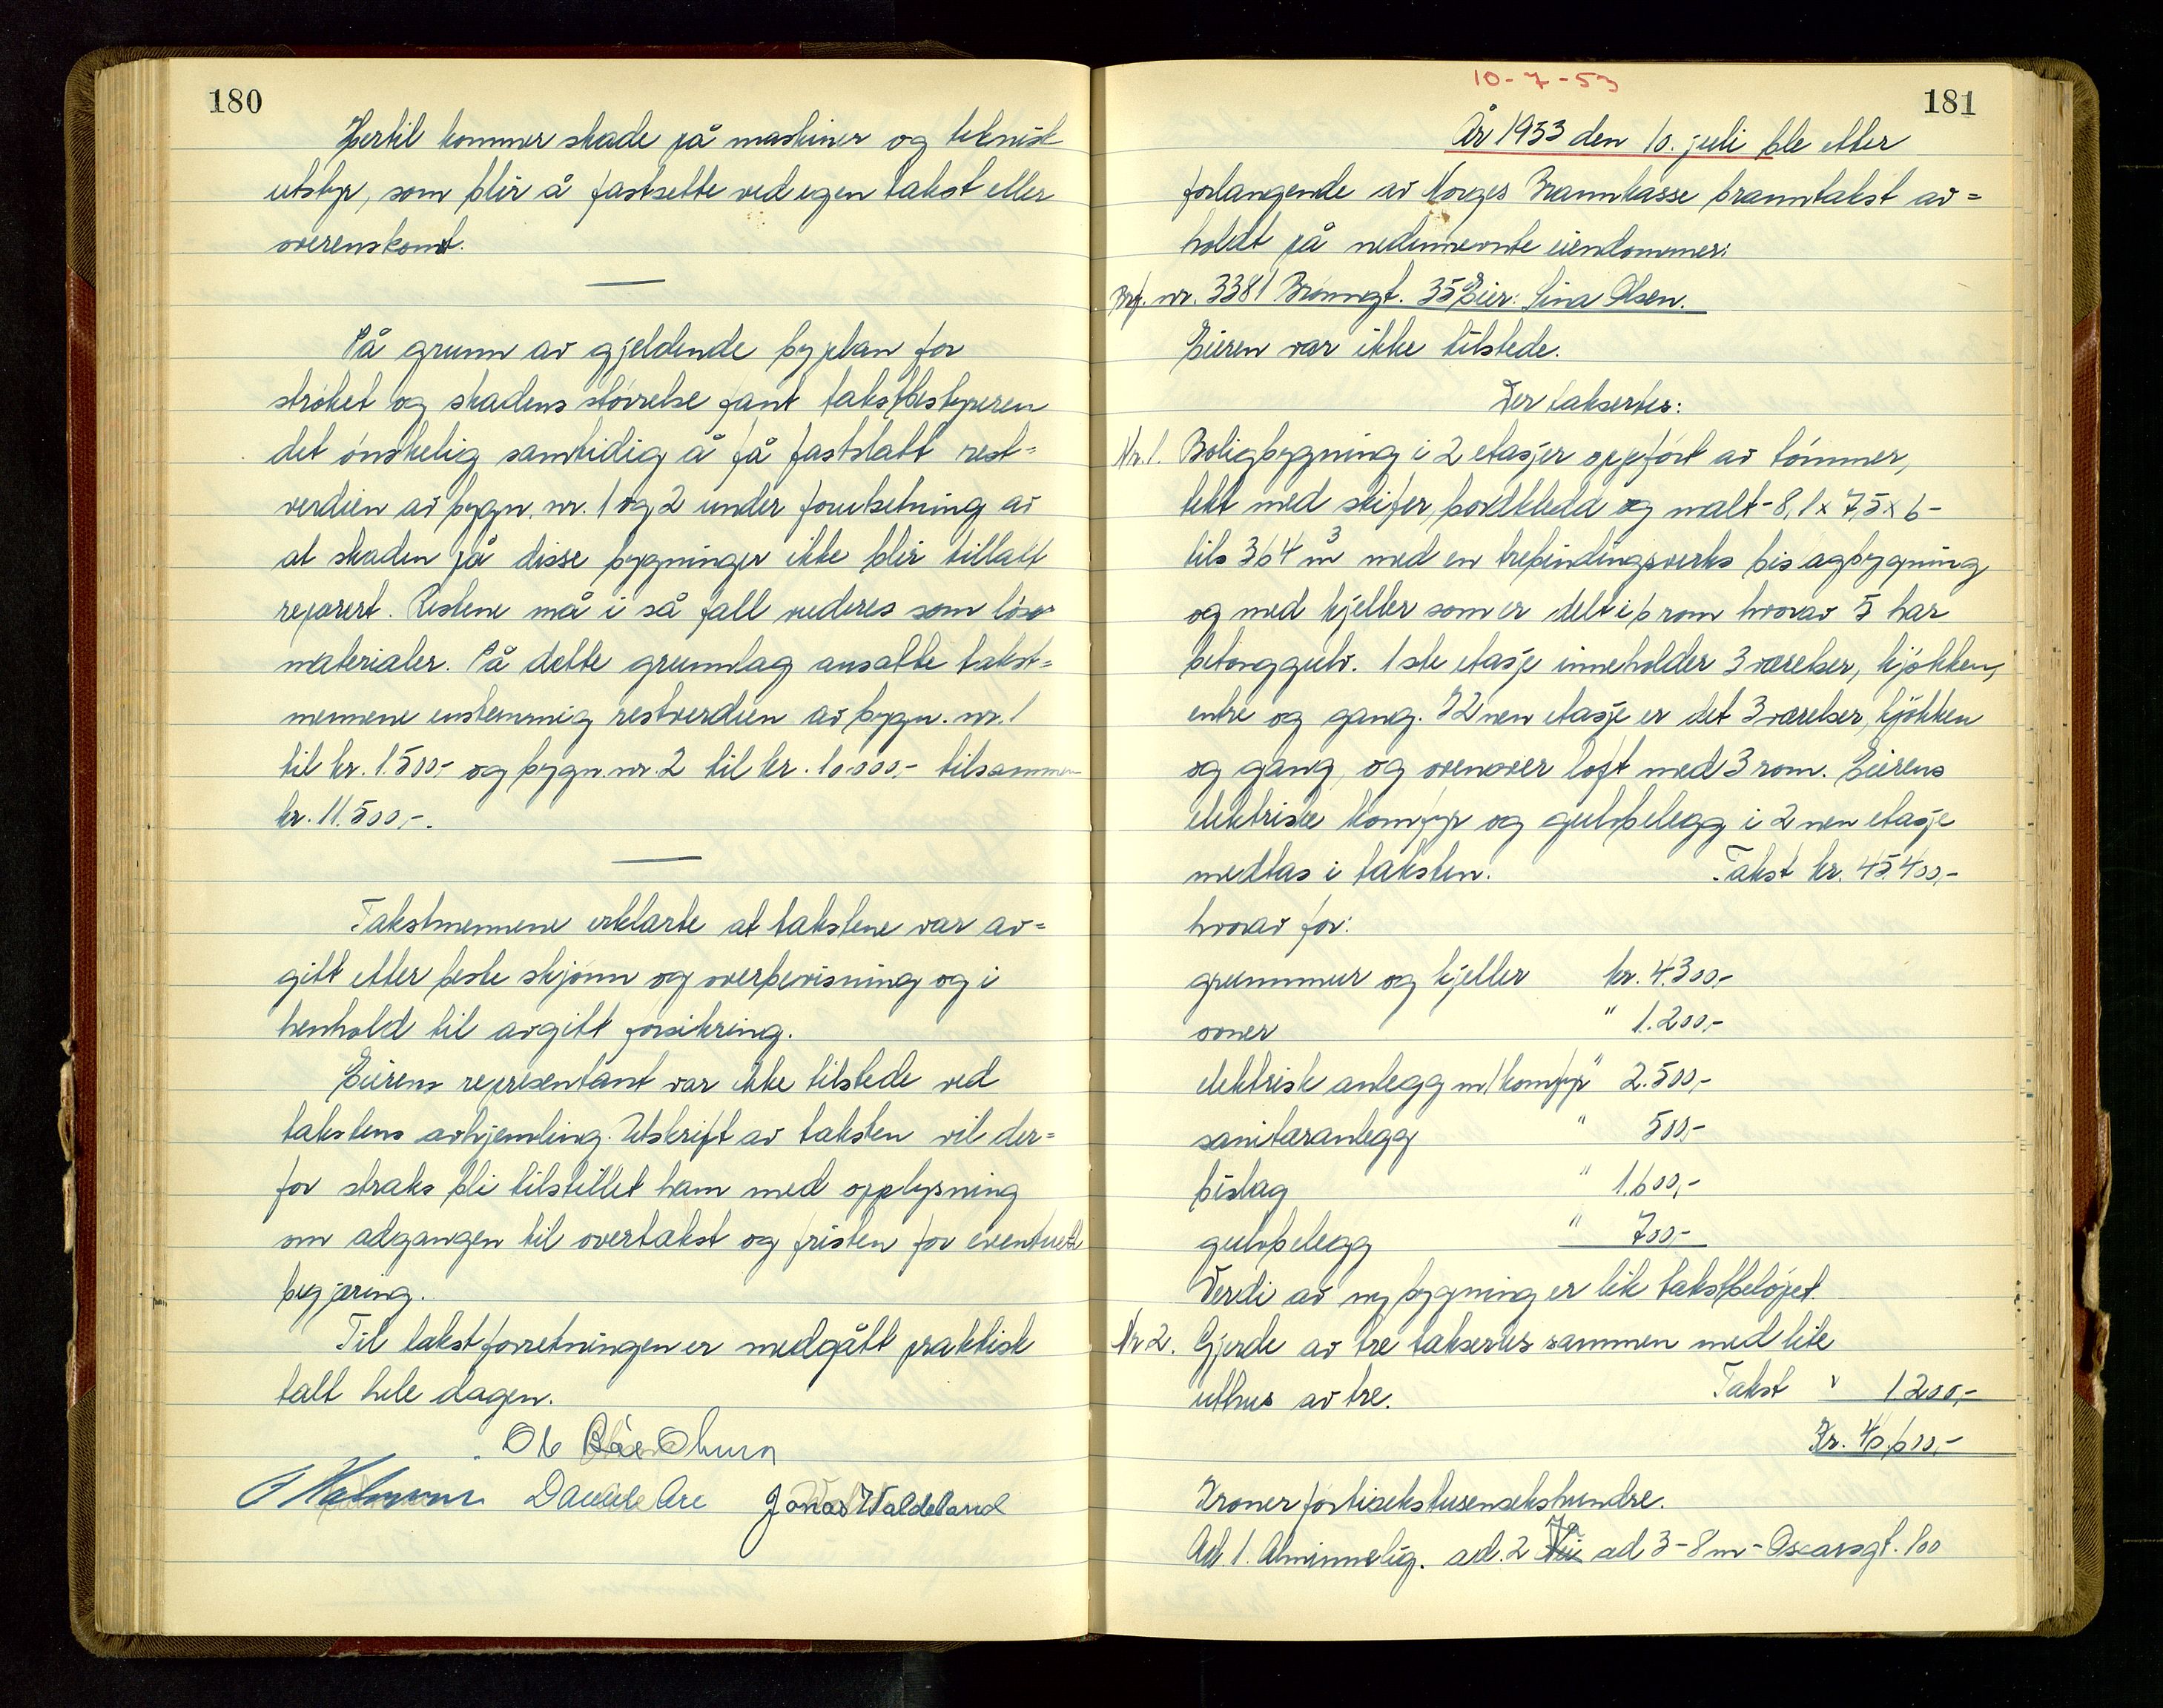 180
Hertil kommer skade på maskiner og teknisk
utstyr, som blir å fastsette ved egen takst eller
overenskomst.
På grunn av gjeldende byplan for
strøket og skadens størrelse fant takstbestyreren
det ønskelig samtidig å få fastslatt rest=
verdien av bygn. nr. 1 og 2 under forutsetning av
at skaden på disse bygninger ikke blir tillatt
reparert. Restene må i så fall vurderes som løse
materialer. På dette grunnlag ansatte takst=
mennene enstemmig restverdien av bygn. nr. 1
til kr. 1.500,- og bygn. nr. 2 til kr. 10.000,- tilsammen
kr. 11.500,-.
Takstmennene erklærte at takstene var av=
gitt etter beste skjønn og overbevisning og i
henhold til avgitt forsikring.
Eierens representant var ikke tilstede ved
takstens avhjemling. Utskrift av taksten vil der=
for straks bli tilstillet ham med opplysning
om adgangen til overtakst og fristen for eventuell
begjæring.
Til takstforretningen er medgått praktisk
talt hele dagen.
Jonas Waldeland
10-7-53
181
År 1953 den 10. juli ble etter
forlangende av Norges Brannkasse branntakst av=
holdt på nedennevnte eiendommer:
Brf. nr. 3381 Brønngt. 35 Eier: Sina Olsen.
Eieren var ikke tilstede.
Der takseres:
Nr. 1. Boligbygning i 2 etasjer oppført av tømmer,
tekt med skifer, bordkledd og malt - 8,1 x 7,5 x 6 -
tils 364 m³ med en trebindingsverks bislagbygning
og med kjeller som er delt i 6 rom hvorav 5 har
betonggulv. 1ste etasje inneholder 3 værelser, kjøkken,
entre og gang. I 2nen etasje er det 3 værelser, kjøkken
og gang, og ovenover loft med 3 rom. Eierens
elektriske komfyr og gulvbelegg i 2nen etasje
medtas i taksten. Takst kr. 45.400,-
hvorav for:
grunnmur og kjeller kr. 4.300,-
ovner " 1.200,-
elektrisk anlegg m/komfyr " 2.500,-
sanitæranlegg " 500,-
bislag " 1.600,-
gulvbelegg " 700,-
Verdi av ny bygning er lik takstbeløpet
Nr 2. Gjerde av tre takseres sammen med lite
uthus av tre. Takst " 1.200,-
Kr. 46.600,-
Kroner førtisekstusensekshundre.
Ad. 1. Alminnelig. ad. 2 Ja ad 3 - 8 m - Oscarsgt. 100